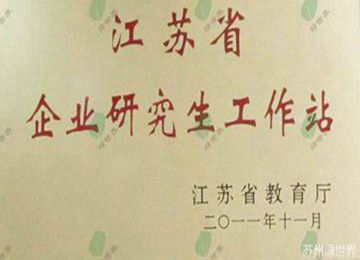 江苏省
企业研究生工作站
江苏省教育厅
二〇一一年十一月
苏州绿世界